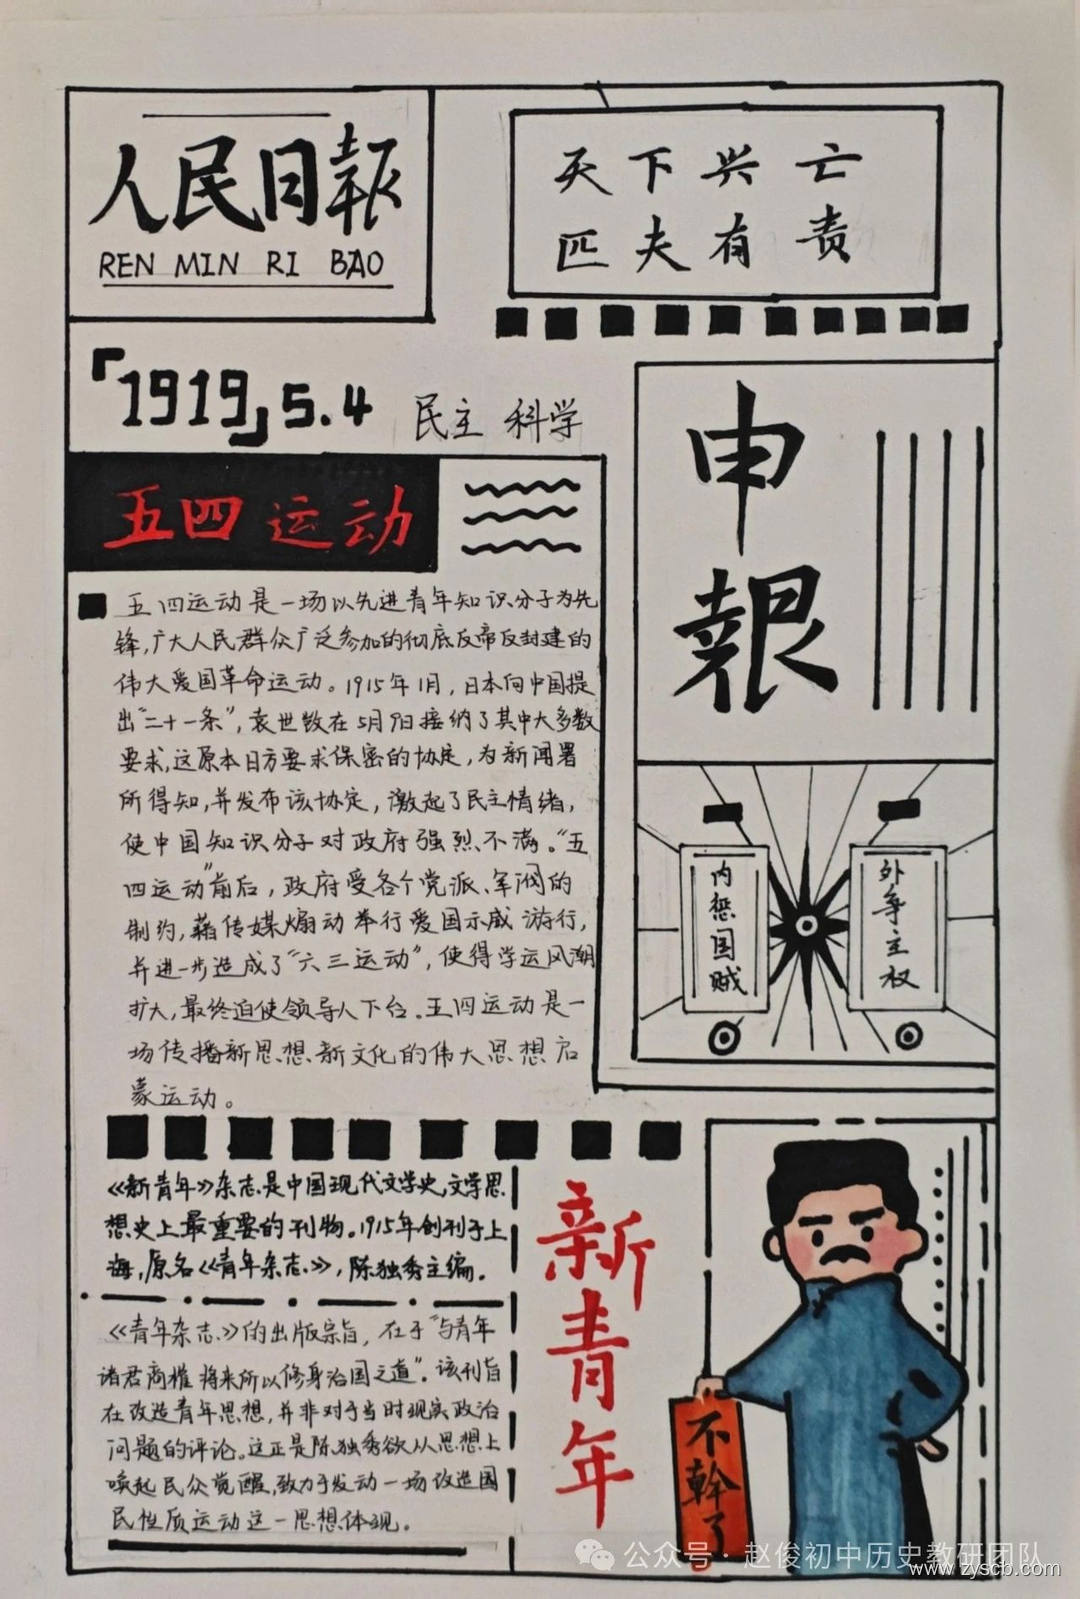 人民日報
REN MIN RI BAO
天下兴亡
匹夫有责
「1919」5.4
民主 科学
五四运动
五四运动是一场以先进青年知识分子为先
锋,广大人民群众广泛参加的彻底反帝反封建的
伟大爱国革命运动。1915年1月,日本向中国提
出“二十一条”,袁世凯在5月9日接纳了其中大多数
要求,这原本日方要求保密的协定,为新闻署
所得知,并发布该协定,激起了民主情绪,
使中国知识分子对政府强烈不满。“五
四运动”前后,政府受各个党派、军阀的
制约,藉传媒煽动举行爱国示威游行,
并进一步造成了“六三运动”,使得学运风潮
扩大,最终迫使领导人下台。五四运动是一
场传播新思想新文化的伟大思想启
蒙运动。
申
報
内惩国贼
外争主权
《新青年》杂志是中国现代文学史,文学思
想史上最重要的刊物。1915年创刊于上
海,原名《青年杂志》,陈独秀主编。
《青年杂志》的出版宗旨,在于“与青年
诸君商榷将来所以修身治国之道”。该刊旨
在改造青年思想,并非对于当时现实政治
问题的评论。这正是陈独秀欲从思想上
唤起民众觉醒,致力于发动一场改造国
民性质运动这一思想体现。
新青年
不幹了
公众号·赵俊初中历史教研团队
www.zyscb.com